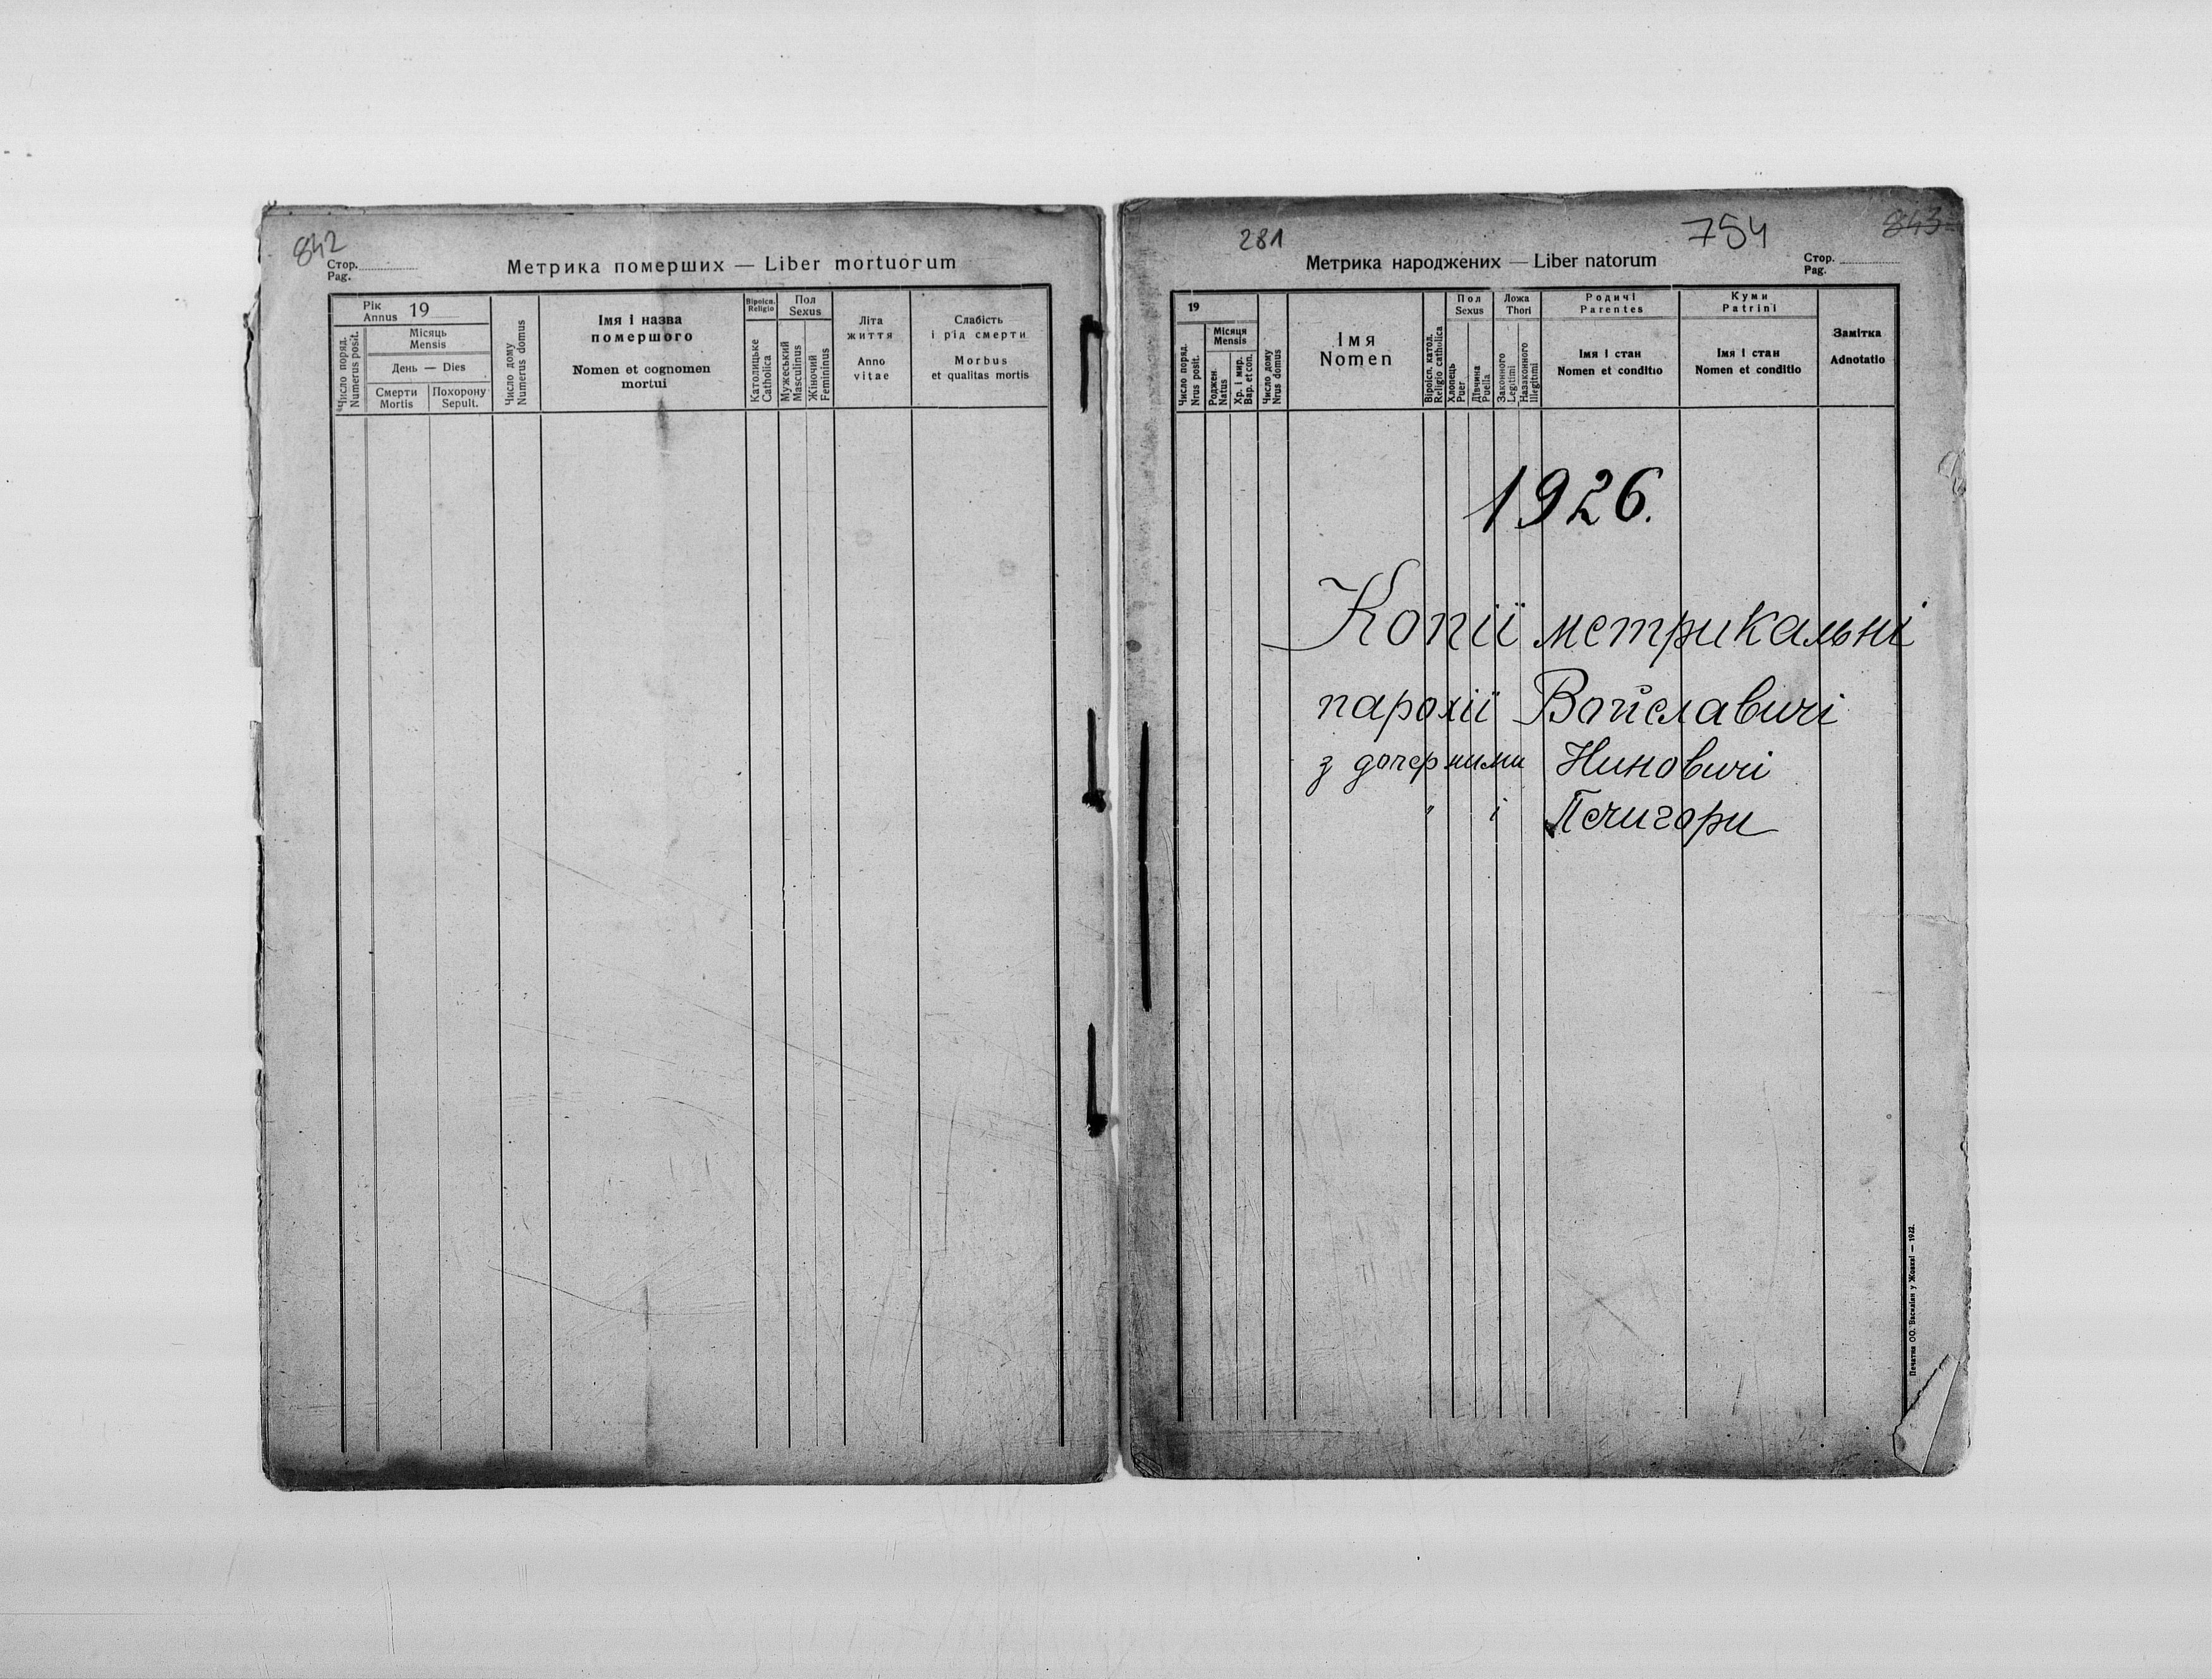 842
Стор.
Pag.
Метрика померших — Liber mortuorum
Рік
Annus 19
Число поряд.
Numerus posit.
Місяць
Mensis
День — Dies
Смерти
Mortis
Похорону
Sepult.
Число дому
Numerus domus
Імя і назва
помершого
Nomen et cognomen
mortui
Віроісп.
Religio
Католицьке
Catholica
Пол
Sexus
Мужеський
Masculinus
Жіночий
Femininus
Літа
життя
Anno
vitae
Слабість
і рід смерти
Morbus
et qualitas mortis
281
754
843
Метрика народжених — Liber natorum
Стор.
Pag.
19
Число поряд.
Nrus posit.
Місяця
Mensis
Роджен.
Natus
Хр. і мир.
Bap. et con.
Число дому
Nrus domus
Імя
Nomen
Віроісп. катол.
Religio catholica
Пол
Sexus
Хлопець
Puer
Дівчина
Puella
Ложа
Thori
Законного
Legitimi
Незаконного
Illegitimi
Родичі
Parentes
Імя і стан
Nomen et conditio
Куми
Patrini
Імя і стан
Nomen et conditio
Замітка
Adnotatio
1926.
Копії метрикальні
парохії Войславичі
з дочерними Ниновичі
" і Печигори
Печатня ОО. Василіян у Жовкві — 1922.